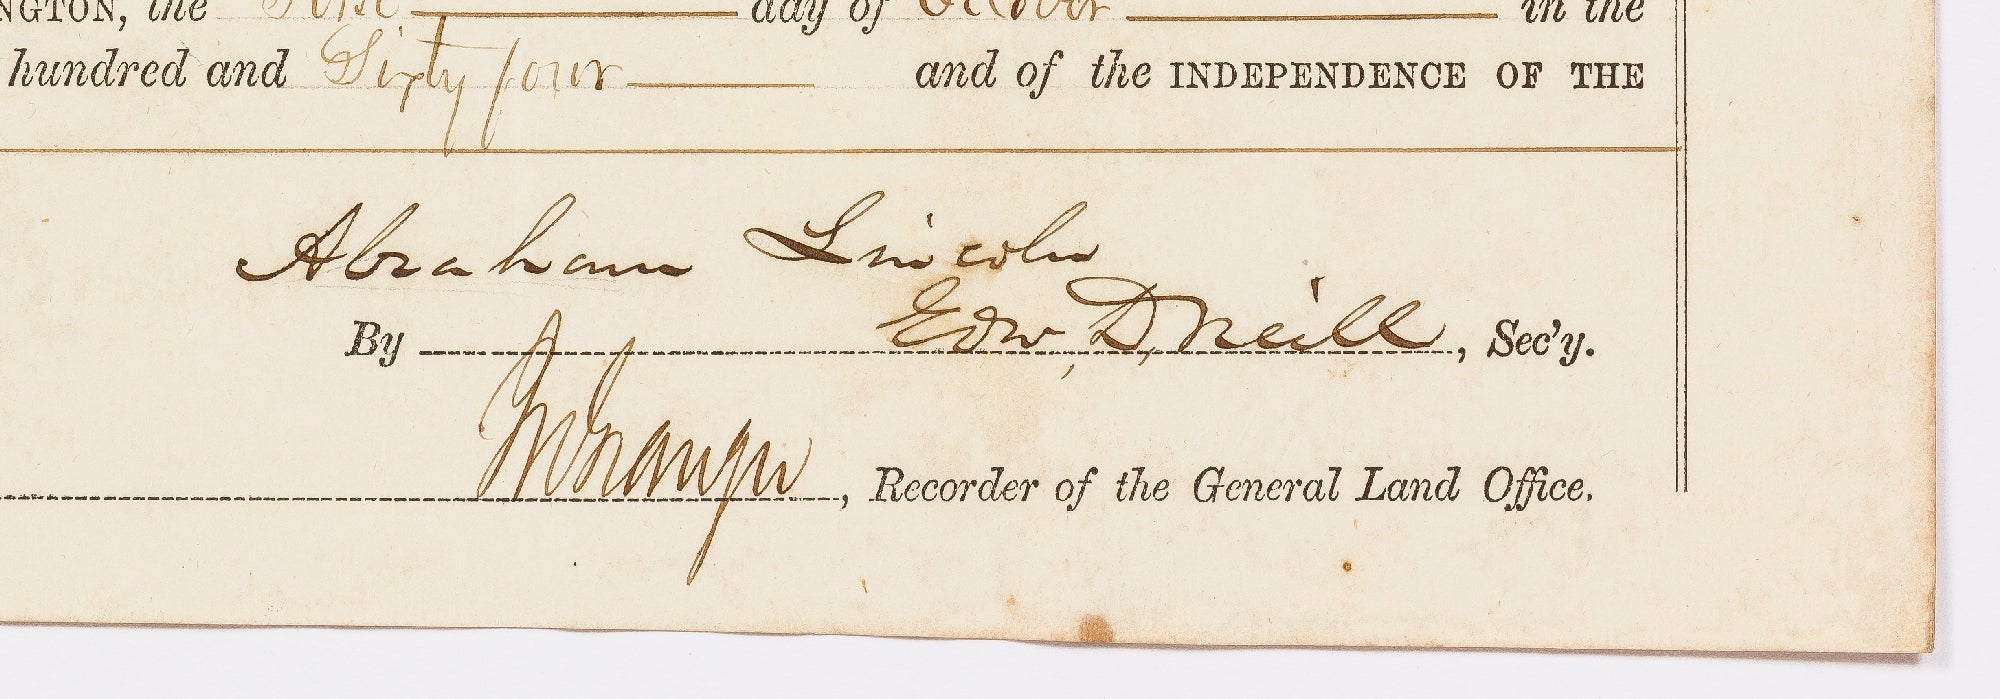 NGTON, the First day of October in the
hundred and Sixty four and of the INDEPENDENCE OF THE
Abraham Lincoln
By Edw, D, Neill, Sec'y.
, Recorder of the General Land Office.